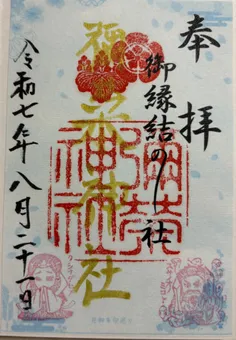 奉拝
御縁結の社
彌栄神社
令和七年八月二十一日